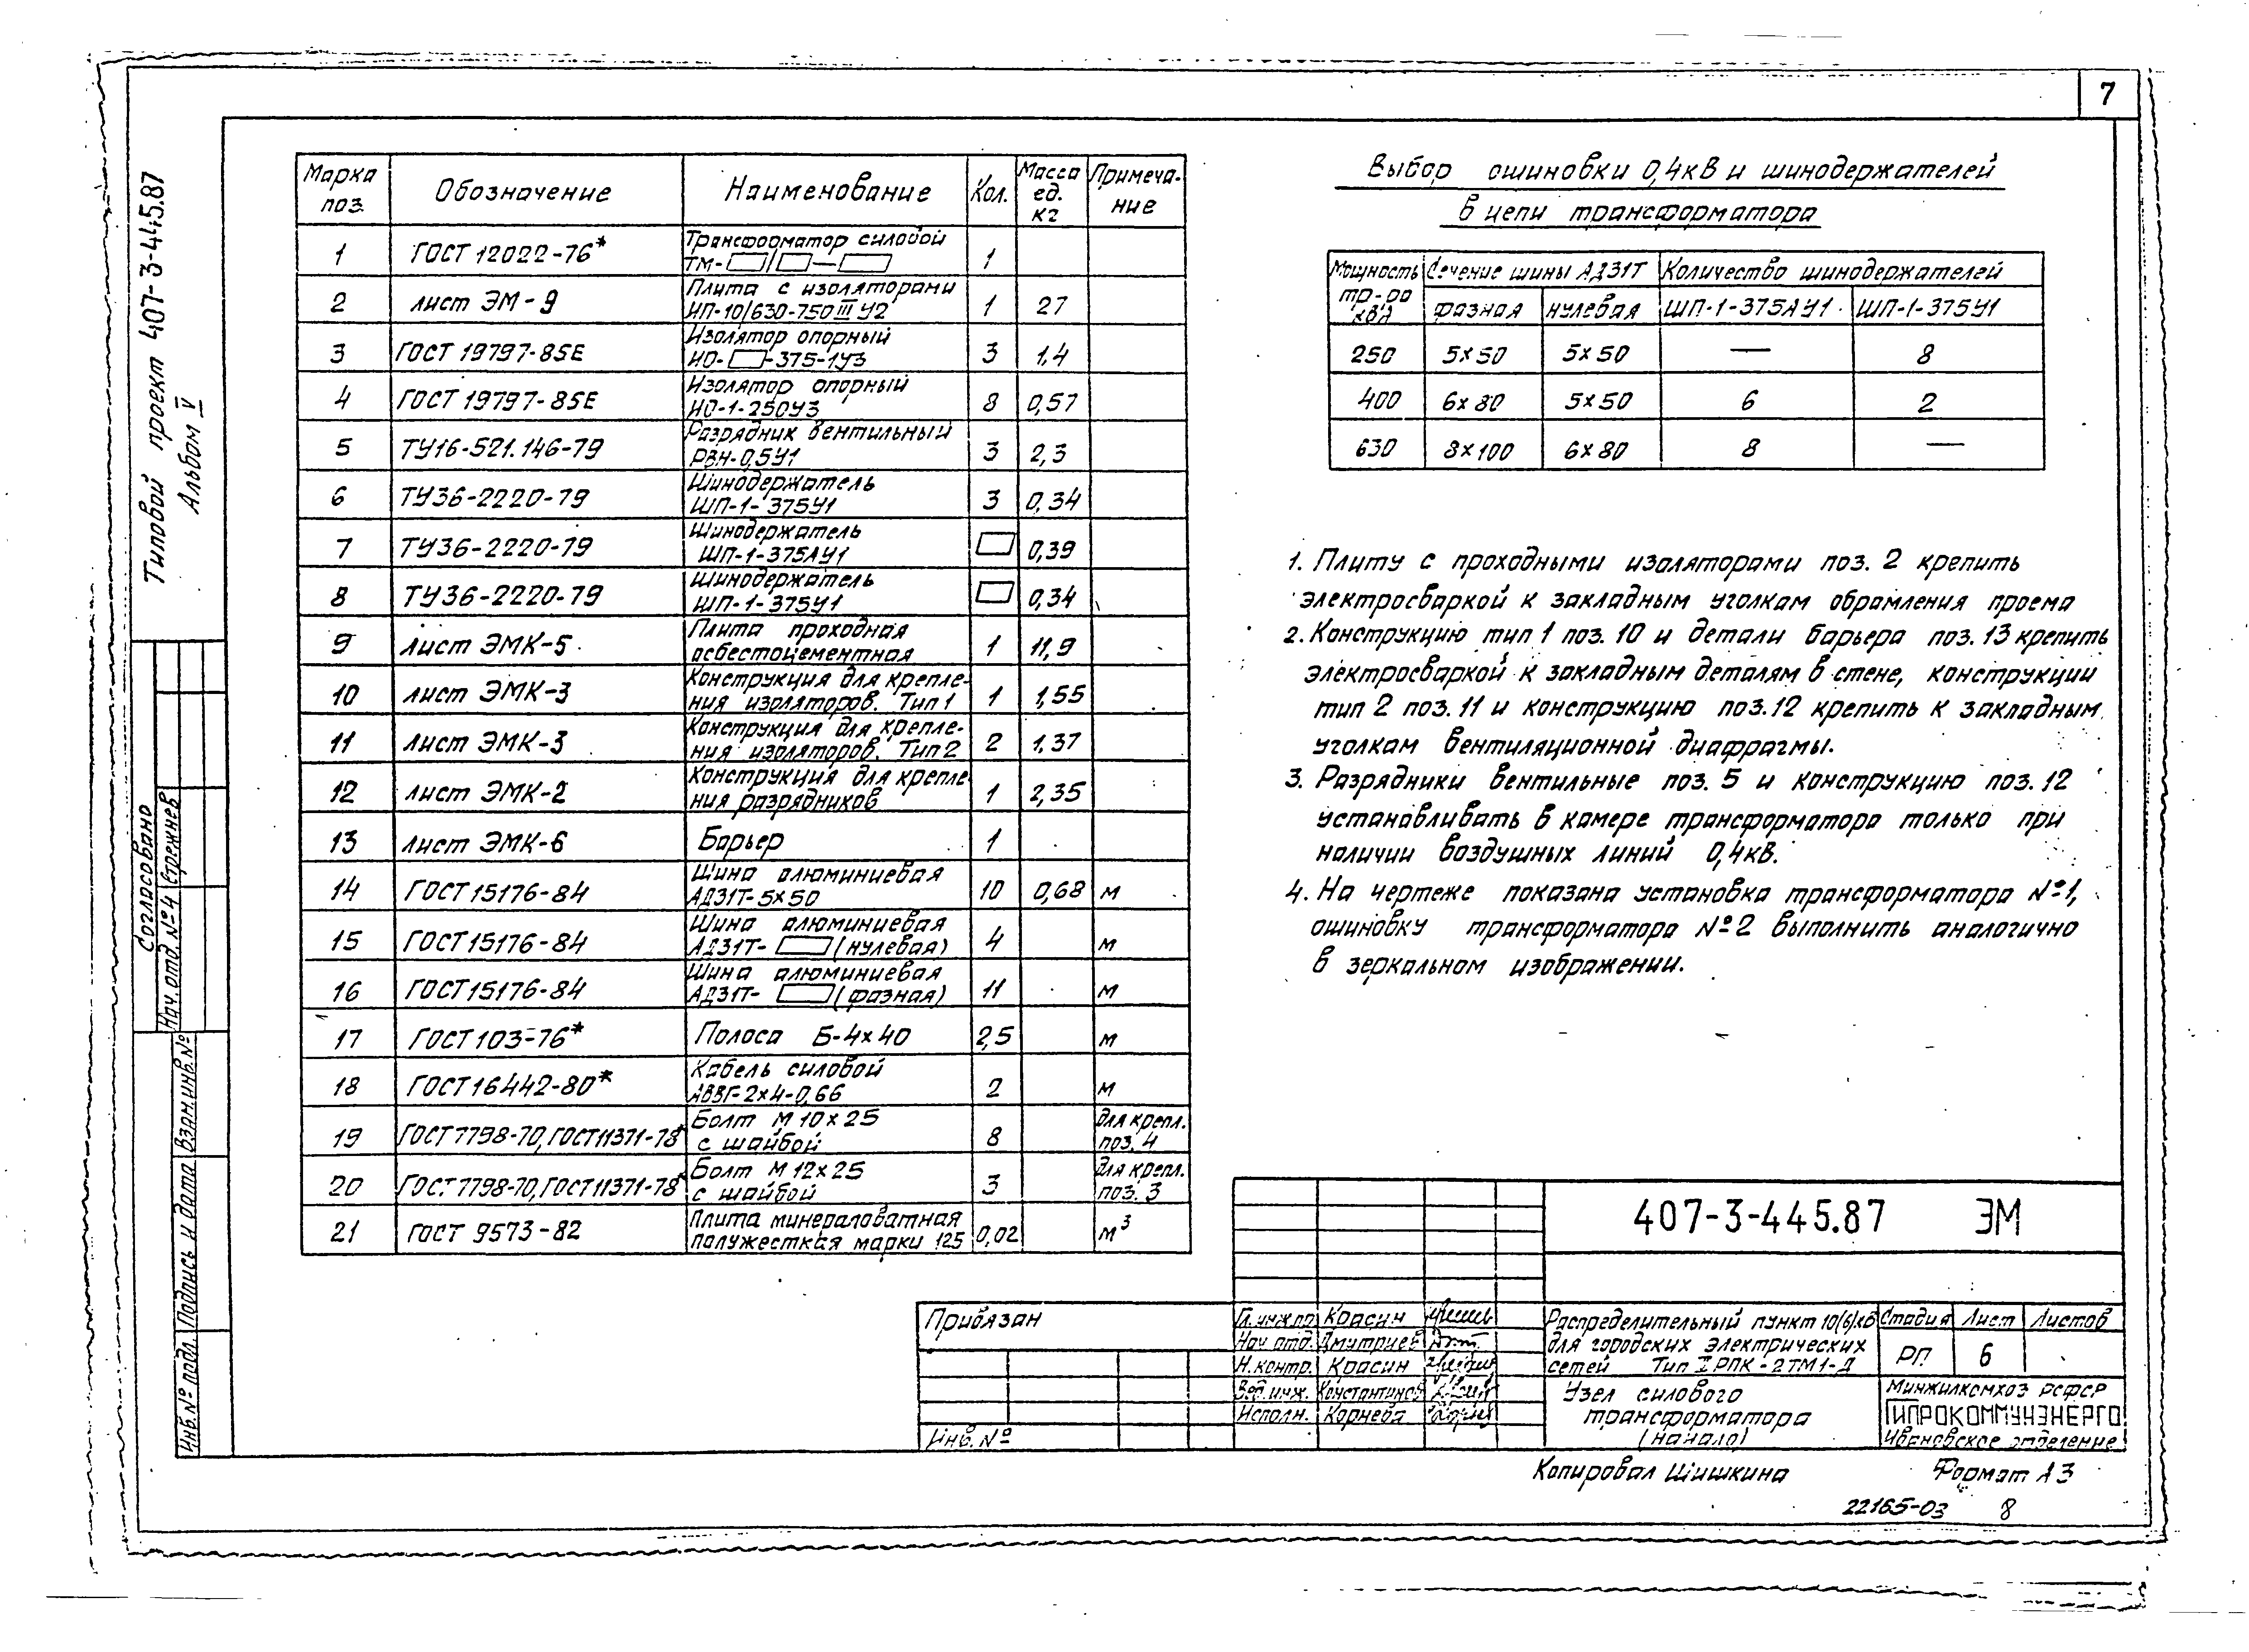 7
Типовой проект 407-3-445.87
Альбом V
Согласовано
Нач. отд. №4 Стрежнев
Взам.инв.№
Подпись и дата
Инв.№ подл.
Марка поз. Обозначение Наименование Кол. Масса ед. кг Примеча-ние
1 ГОСТ 12022-76* Трансформатор силовой ТМ- / - 1
2 лист ЭМ-9 Плита с изоляторами ИП-10/630-750 III У2 1 27
3 ГОСТ 19797-85Е Изолятор опорный ИО- -375-1У3 3 1,4
4 ГОСТ 19797-85Е Изолятор опорный ИО-1-250У3 8 0,57
5 ТУ16-521.146-79 Разрядник вентильный РВН-0,5У1 3 2,3
6 ТУ36-2220-79 Шинодержатель ШП-1-375У1 3 0,34
7 ТУ36-2220-79 Шинодержатель ШП-1-375АУ1 0,39
8 ТУ36-2220-79 Шинодержатель ШП-1-375У1 0,34
9 лист ЭМК-5 Плита проходная асбестоцементная 1 11,9
10 лист ЭМК-3 Конструкция для крепле-ния изоляторов. Тип 1 1 1,55
11 лист ЭМК-3 Конструкция для крепле-ния изоляторов. Тип 2 2 1,37
12 лист ЭМК-2 Конструкция для крепле-ния разрядников 1 2,35
13 лист ЭМК-6 Барьер 1
14 ГОСТ 15176-84 Шина алюминиевая АД31Т-5х50 10 0,68 м
15 ГОСТ 15176-84 Шина алюминиевая АД31Т- (нулевая) 4 м
16 ГОСТ 15176-84 Шина алюминиевая АД31Т- (фазная) 11 м
17 ГОСТ 103-76* Полоса Б-4х40 2,5 м
18 ГОСТ 16442-80* Кабель силовой АВВГ-2х4-0,66 2 м
19 ГОСТ 7798-70, ГОСТ 11371-78* Болт М10х25 с шайбой 8 для крепл. поз. 4
20 ГОСТ 7798-70, ГОСТ 11371-78* Болт М12х25 с шайбой 3 для крепл. поз. 3
21 ГОСТ 9573-82 Плита минераловатная полужесткая марки 125 0,02 м³
Выбор ошиновки 0,4кВ и шинодержателей
в цепи трансформатора
Мощность тр-ра кВА Сечение шины АД31Т Количество шинодержателей
фазная нулевая ШП-1-375АУ1 ШП-1-375У1
250 5х50 5х50 — 8
400 6х80 5х50 6 2
630 8х100 6х80 8 —
1. Плиту с проходными изоляторами поз. 2 крепить
электросваркой к закладным уголкам обрамления проема
2. Конструкцию тип 1 поз. 10 и детали барьера поз. 13 крепить
электросваркой к закладным деталям в стене, конструкции
тип 2 поз. 11 и конструкцию поз. 12 крепить к закладным
уголкам вентиляционной диафрагмы.
3. Разрядники вентильные поз. 5 и конструкцию поз. 12
устанавливать в камере трансформатора только при
наличии воздушных линий 0,4кВ.
4. На чертеже показана установка трансформатора №1,
ошиновку трансформатора №2 выполнить аналогично
в зеркальном изображении.
407-3-445.87 ЭМ
Привязан
Инв.№
Гл.инж.пр. Красин
Нач. отд. Дмитриев
Н.контр. Красин
Вед.инж. Константинов
Исполн. Корнева
Распределительный пункт 10(6)кВ
для городских электрических
сетей Тип I РПК-2ТМ1-Д
Стадия Лист Листов
РП 6
Узел силового
трансформатора
(начало)
Минжилкомхоз РСФСР
ГИПРОКОММУНЭНЕРГО
Ивановское отделение
Копировал Шишкина Формат А3
22165-03 8